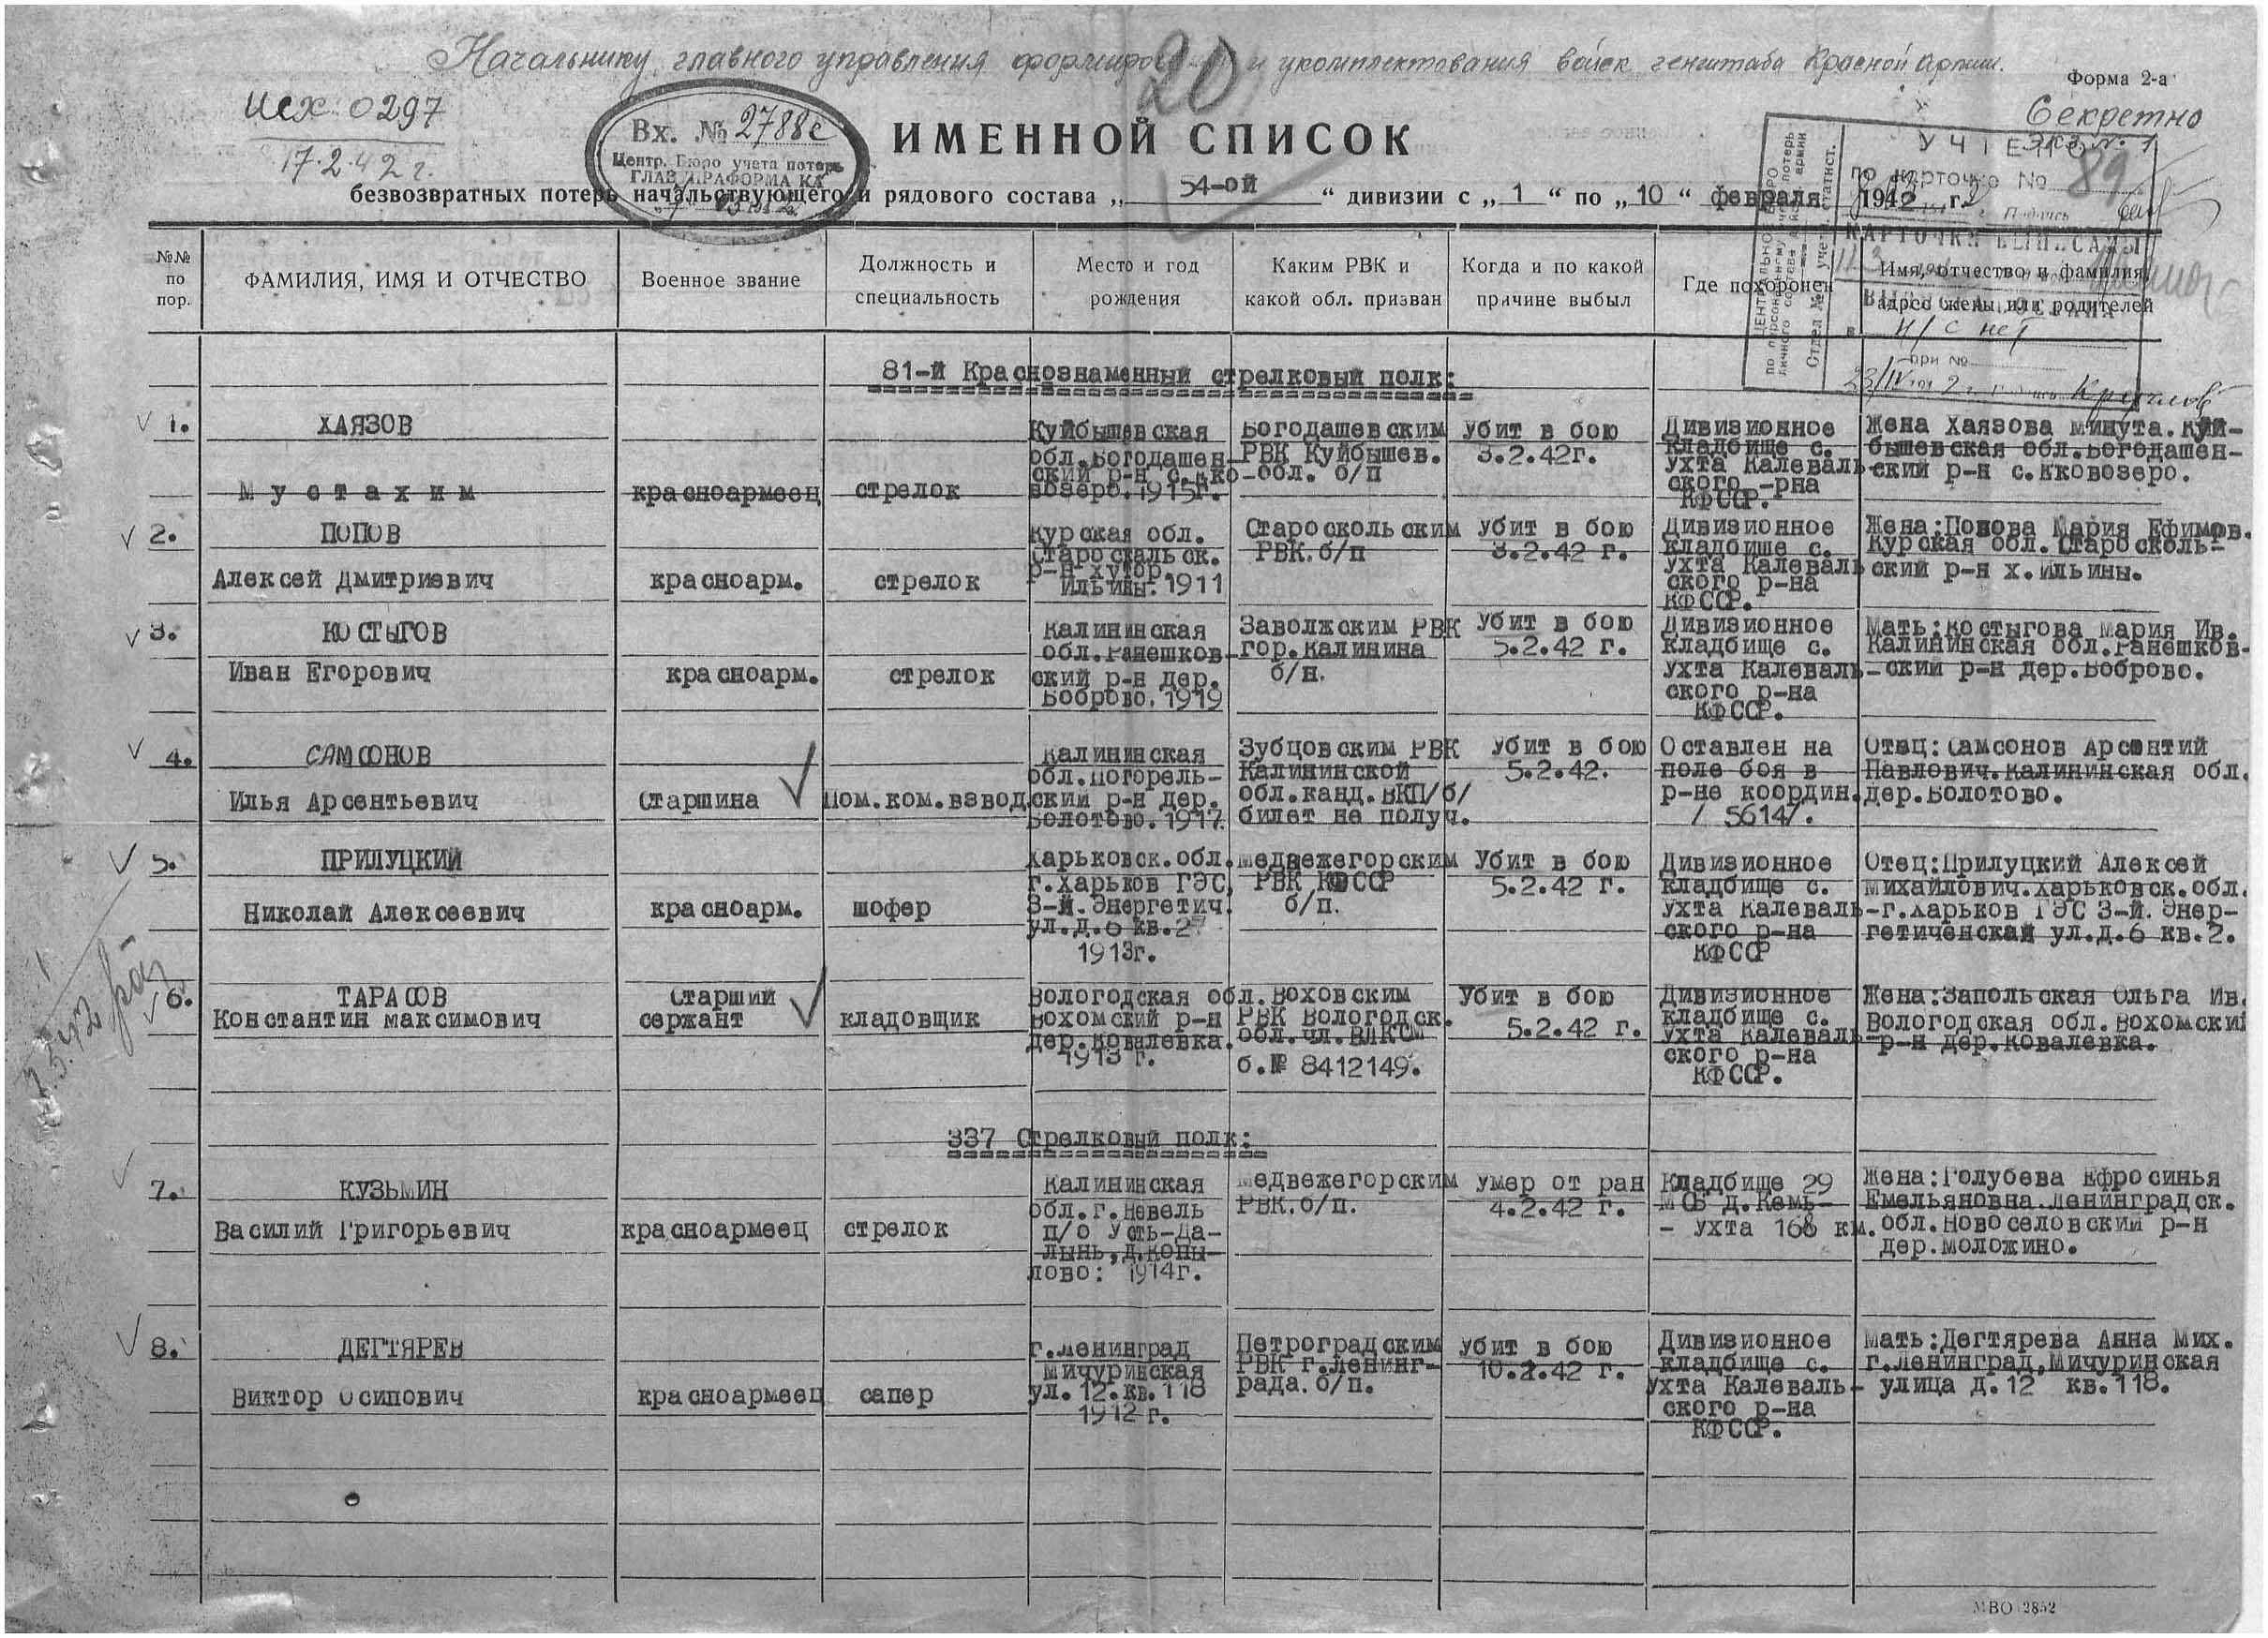 Начальнику главного управления и укомплектования войск генштаба Красной Армии.
20
Форма 2-а
Секретно
Экз. № 1
Исх 0297
17.2.42 г.
Вх. № 2788с
Центр. Бюро учета потерь
КА
УЧТЕНО
по карточке №
89
ИМЕННОЙ СПИСОК
безвозвратных потерь начальствующего и рядового состава „ 54-ой “ дивизии с „ 1 “ по „ 10 “ февраля 1942 г.
№№ по пор.
ФАМИЛИЯ, ИМЯ И ОТЧЕСТВО
Военное звание
Должность и специальность
Место и год рождения
Каким РВК и какой обл. призван
Когда и по какой причине выбыл
Где похоронен
Имя, отчество и фамилия адрес жены или родителей
н/с нет
при №
81-й Краснознаменный стрелковый полк:
1. ХАЯЗОВ
Мустахим
красноармеец
стрелок
Куйбышевская
обл.Богодашен-
ский р-н с.Яко-
возеро.1915г.
Богодашевским
РВК Куйбышев.
обл. б/п
Убит в бою
3.2.42г.
Дивизионное
кладбище с.
Ухта Калеваль-
ского -рна
КФССР.
Жена Хаязова Минута.Куй-
бышевская обл.Богодашен-
ский р-н с.Яковозеро.
2. ПОПОВ
Алексей Дмитриевич
красноарм.
стрелок
Курская обл.
Старосгальск.
р-н хутор.
Ильины.1911
Старооскольским
РВК.б/п
Убит в бою
3.2.42 г.
Дивизионное
кладбище с.
Ухта Калеваль
ского р-на
КФССР.
Жена:Попова Мария Ефимов.
Курская обл.Старосколь-
ский р-н х.Ильины.
3. КОСТЫГОВ
Иван Егорович
красноарм.
стрелок
Калининская
обл.Ранешков-
ский р-н дер.
Боброво.1919
Заволжским РВК
гор.Калинина
б/н.
Убит в бою
5.2.42 г.
Дивизионное
кладбище с.
Ухта Калеваль-
ского р-на
КФССР.
Мать:Костыгова Мария Ив.
Калининская обл.Ранешков-
ский р-н дер.Боброво.
4. САМСОНОВ
Илья Арсентьевич
Старшина
Пом.ком.взвод.
Калининская
обл.Погорель-
ский р-н дер.
Болотово.1917.
Зубцовским РВК
Калининской
обл.канд.ВКП/б/
билет не получ.
Убит в бою
5.2.42.
Оставлен на
поле боя в
р-не координ.
/ 5614/.
Отец:Самсонов Арсентий
Павлович.Калининская обл.
дер.Болотово.
5. ПРИЛУЦКИЙ
Николай Алексеевич
красноарм.
шофер
Харьковск.обл.
г.Харьков ГЭС,
3-й.Энергетич.
ул.д.6 кв.2
1913г.
Медвежегорским
РВК КФССР
б/п.
Убит в бою
5.2.42 г.
Дивизионное
кладбище с.
Ухта Калеваль-
ского р-на
КФССР
Отец:Прилуцкий Алексей
Михайлович.Харьковск.обл.
г.Харьков ГЭС 3-й.Энер-
гетиченский ул.д.6 кв.2.
6. ТАРАСОВ
Константин Максимович
Старший
сержант
кладовщик
Вологодская обл.
Вохомский р-н
дер.Ковалевка.
1913 г.
Воховским
РВК Вологодск.
обл.чл.ВЛКСМ
б.№ 8412149.
Убит в бою
5.2.42 г.
Дивизионное
кладбище с.
Ухта Калеваль-
ского р-на
КФССР.
Жена:Запольская Ольга Ив.
Вологодская обл.Вохомский
р-н дер.Ковалевка.
337 Стрелковый полк:
7. КУЗЬМИН
Василий Григорьевич
красноармеец
стрелок
Калининская
обл.г.Невель
п/о Усть-Да-
лынь,д.Копы-
лово: 1914г.
Медвежегорским
РВК.б/п.
Умер от ран
4.2.42 г.
Кладбище 29
МСБ д.Кемь-
- Ухта 168 км.
Жена:Голубева Ефросинья
Емельяновна.Ленинградск.
обл.Новоселовский р-н
дер.Моложино.
8. ДЕГТЯРЕВ
Виктор Осипович
красноармеец
сапер
г.Ленинград
Мичуринская
ул.12.кв.118
1912 г.
Петроградским
РВК г.Ленинг-
рада.б/п.
Убит в бою
10.2.42 г.
Дивизионное
кладбище с.
Ухта Калеваль-
ского р-на
КФССР.
Мать:Дегтярева Анна Мих.
г.Ленинград,Мичуринская
улица д.12 кв.118.
МВО 2852